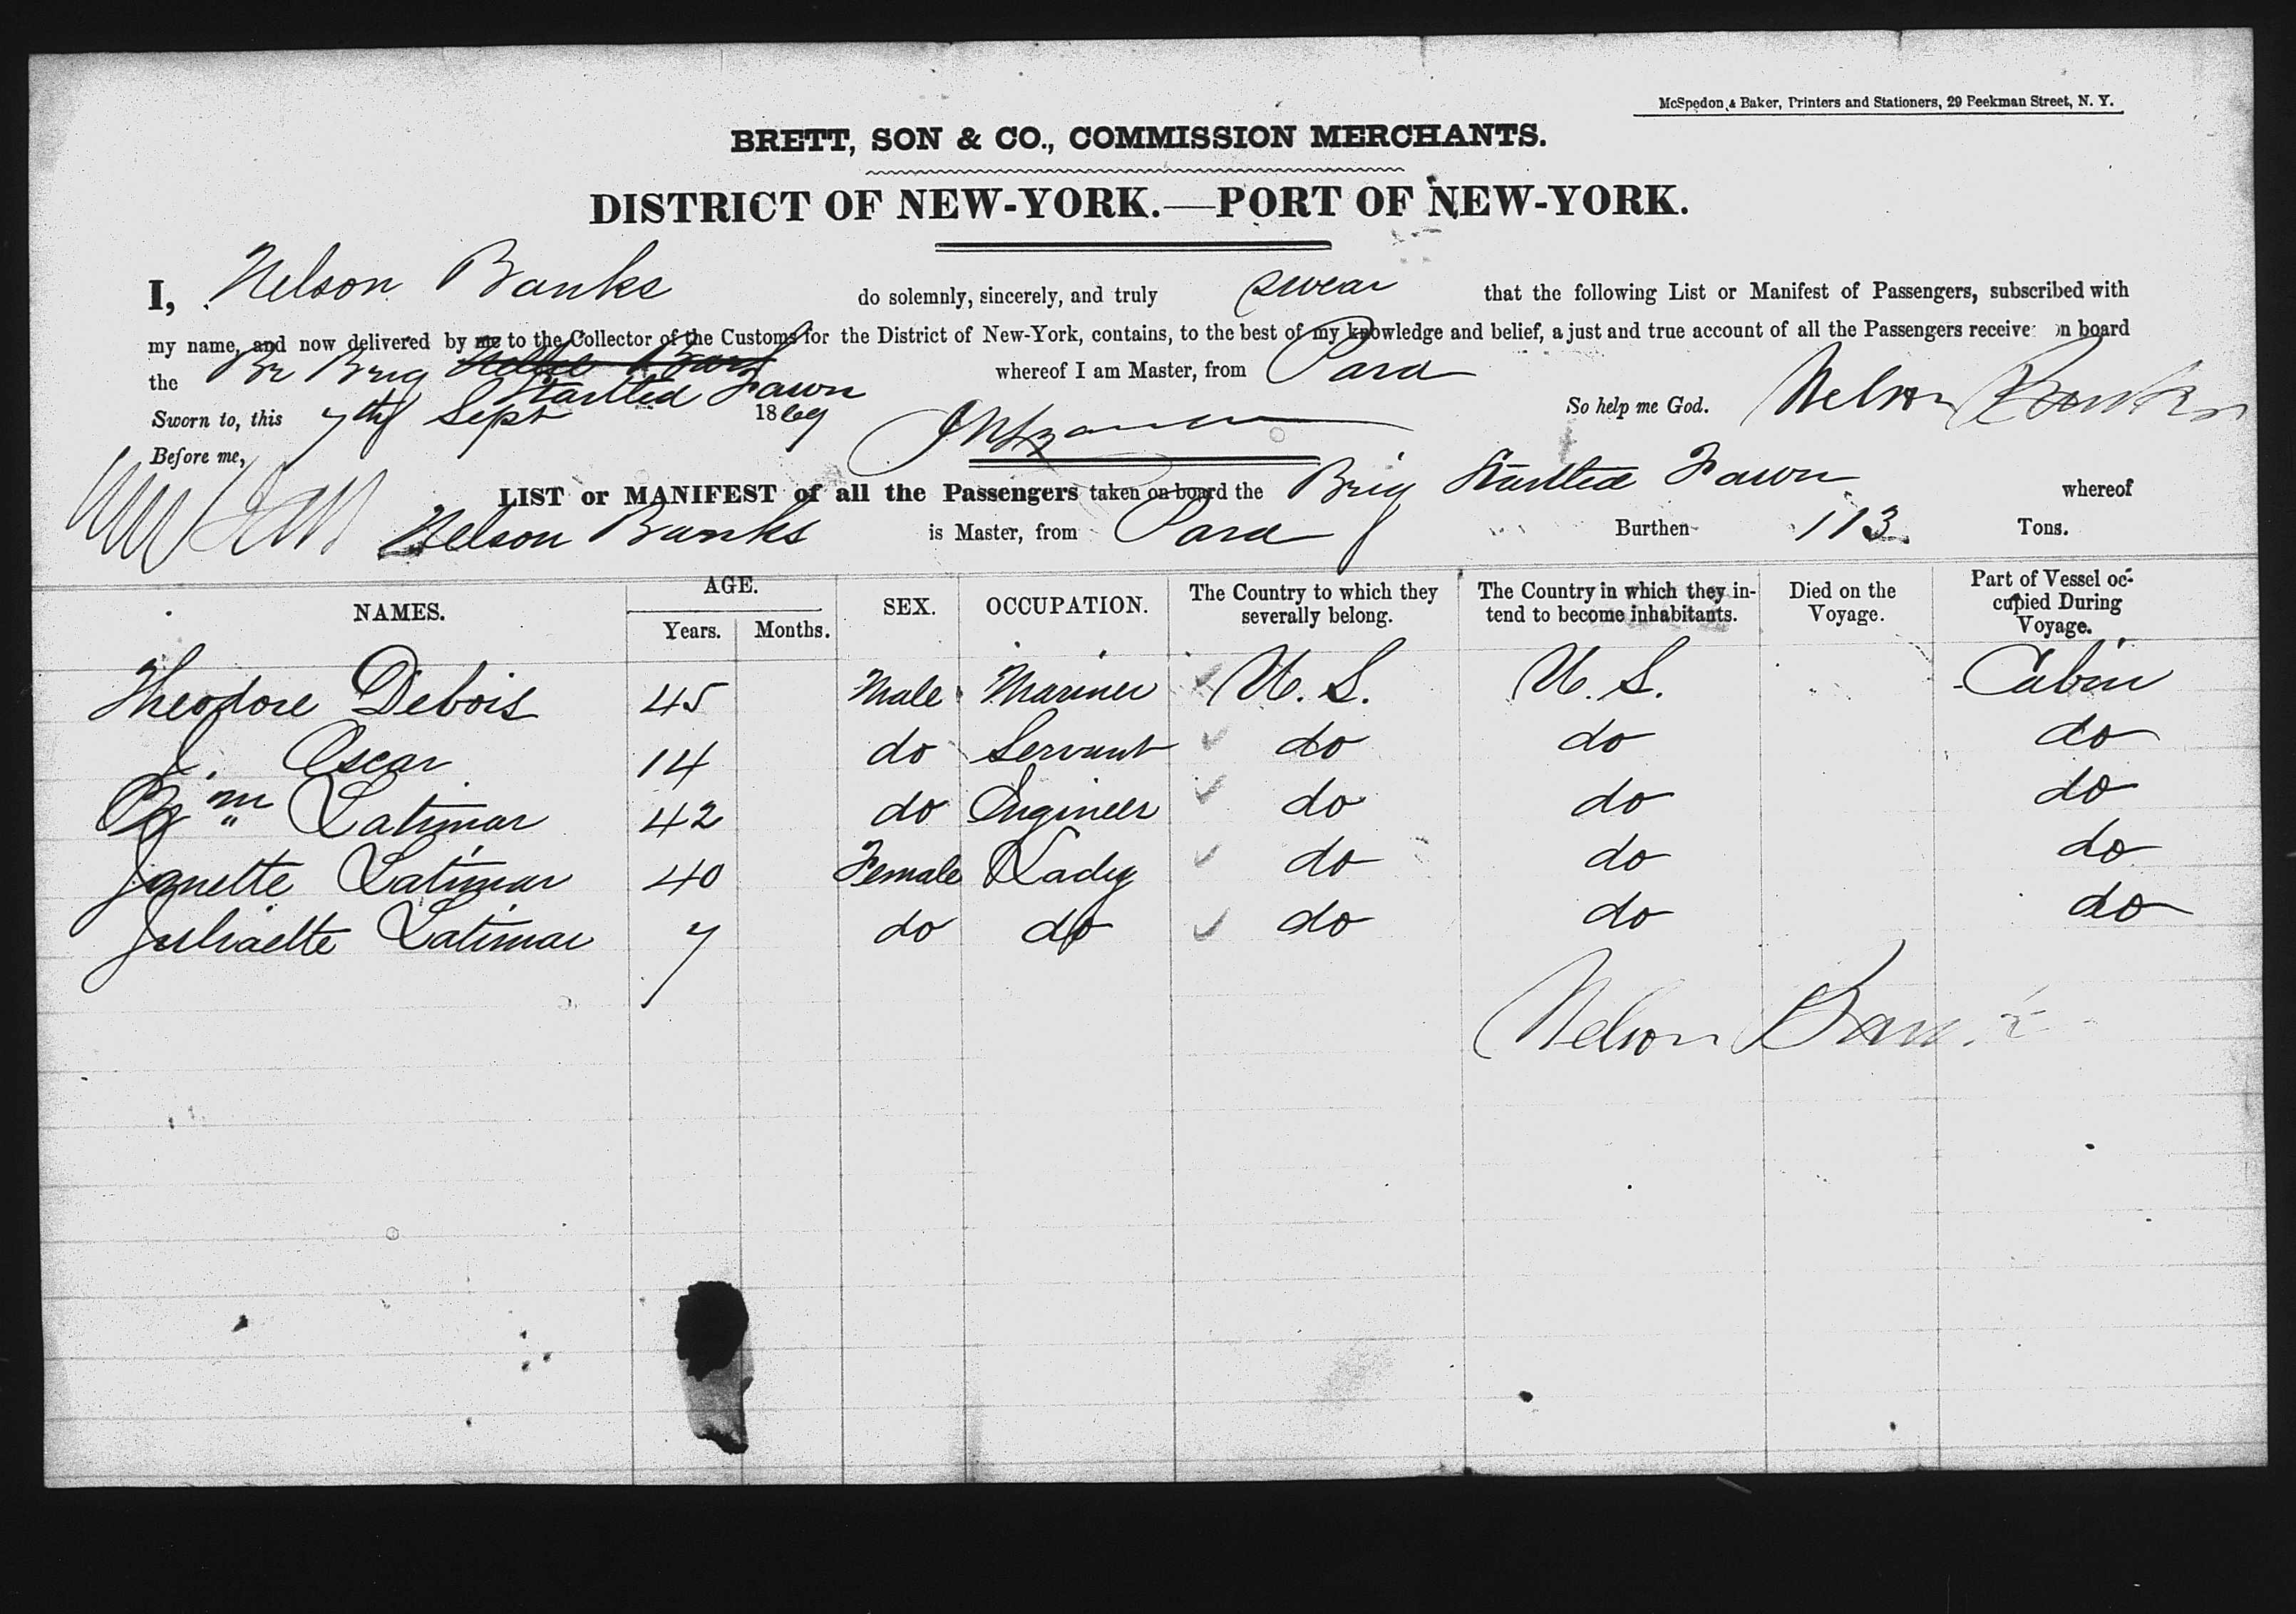 McSpedon & Baker, Printers and Stationers, 29 Beekman Street, N. Y.
BRETT, SON & CO., COMMISSION MERCHANTS.
DISTRICT OF NEW-YORK.—PORT OF NEW-YORK.
I, Nelson Banks do solemnly, sincerely, and truly swear that the following List or Manifest of Passengers, subscribed with
my name, and now delivered by me to the Collector of the Customs for the District of New-York, contains, to the best of my knowledge and belief, a just and true account of all the Passengers receive on board
the Br Brig Startled Fawn whereof I am Master, from Para
Sworn to, this 7th Sept 1869 So help me God. Nelson Banks
Before me,
LIST or MANIFEST of all the Passengers taken on board the Brig Startled Fawn whereof
Nelson Banks is Master, from Para Burthen 113 Tons.
NAMES. AGE. Years. Months. SEX. OCCUPATION. The Country to which they severally belong. The Country in which they intend to become inhabitants. Died on the Voyage. Part of Vessel occupied During Voyage.
Theodore Debois 45 Male Mariner U. S. U. S. Cabin
J. Oscar 14 do Servant do do do
Wm Latimar 42 do Engineer do do do
Janette Latimar 40 Female Lady do do do
Juliaette Latimar 7 do do do do do
Nelson Banks